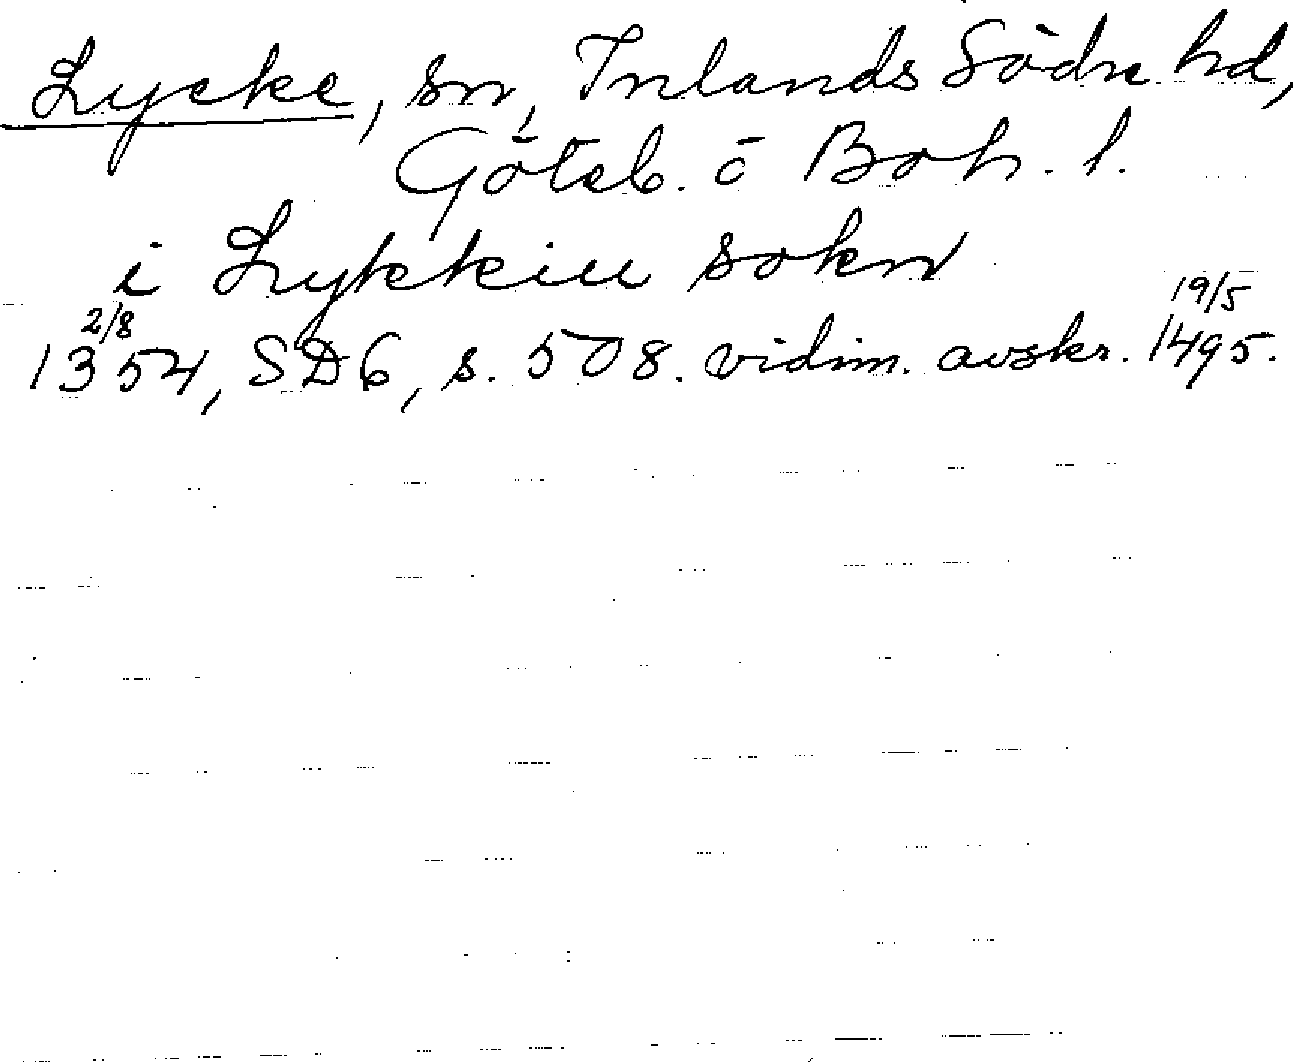 Lycke, sn, Inlands Södre hd,
Göteb. o Boh. l.
i Lykkiu sokn
2/8 19/5
1354, SD6, s. 508. vidim. avskr. 1495.